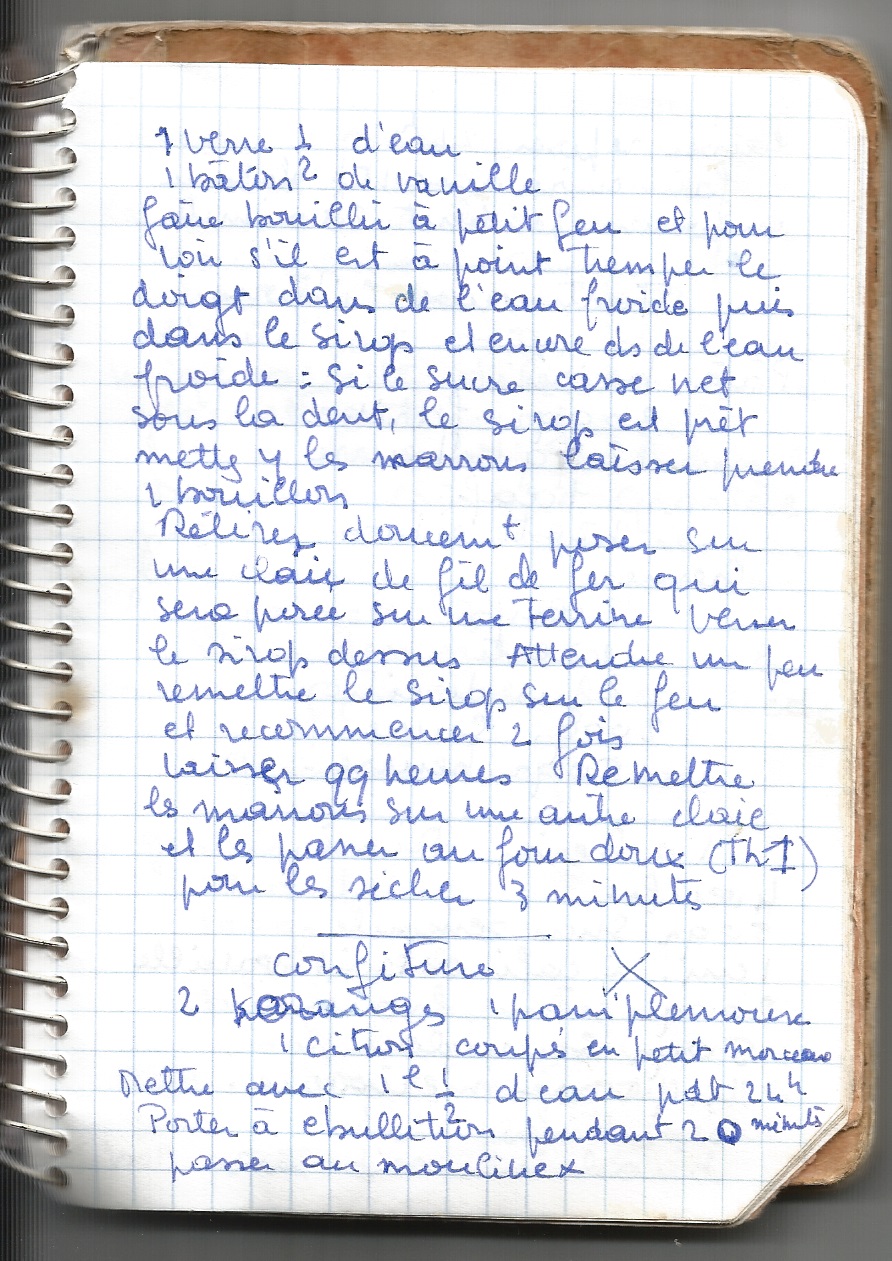 1 verre 1/2 d'eau
1 bâton de vanille
faire bouillir à petit feu et pour
voir s'il est à point tremper le
doigt dans de l'eau froide puis
dans le sirop et encore ds de l'eau
froide : si le sucre casse net
sous la dent, le sirop est prêt
mettez y les marrons laisser prendre
1 bouillon
Retirez doucemt poser sur
une claie de fil de fer qui
sera posée sur une terrine verser
le sirop dessus Attendre un peu
remettre le sirop sur le feu
et recommencer 2 fois
laisser qq heures Remettre
les marrons sur une autre claie
et les passer au four doux (Th 1)
pour les sécher 3 minutes
confiture X
2 oranges 1 pamplemousse
1 citron coupés en petit morceau
Mettre avec 1 l 1/2 d'eau pdt 24h
Porter à ébullition pendant 20 minutes
passer au moulinex